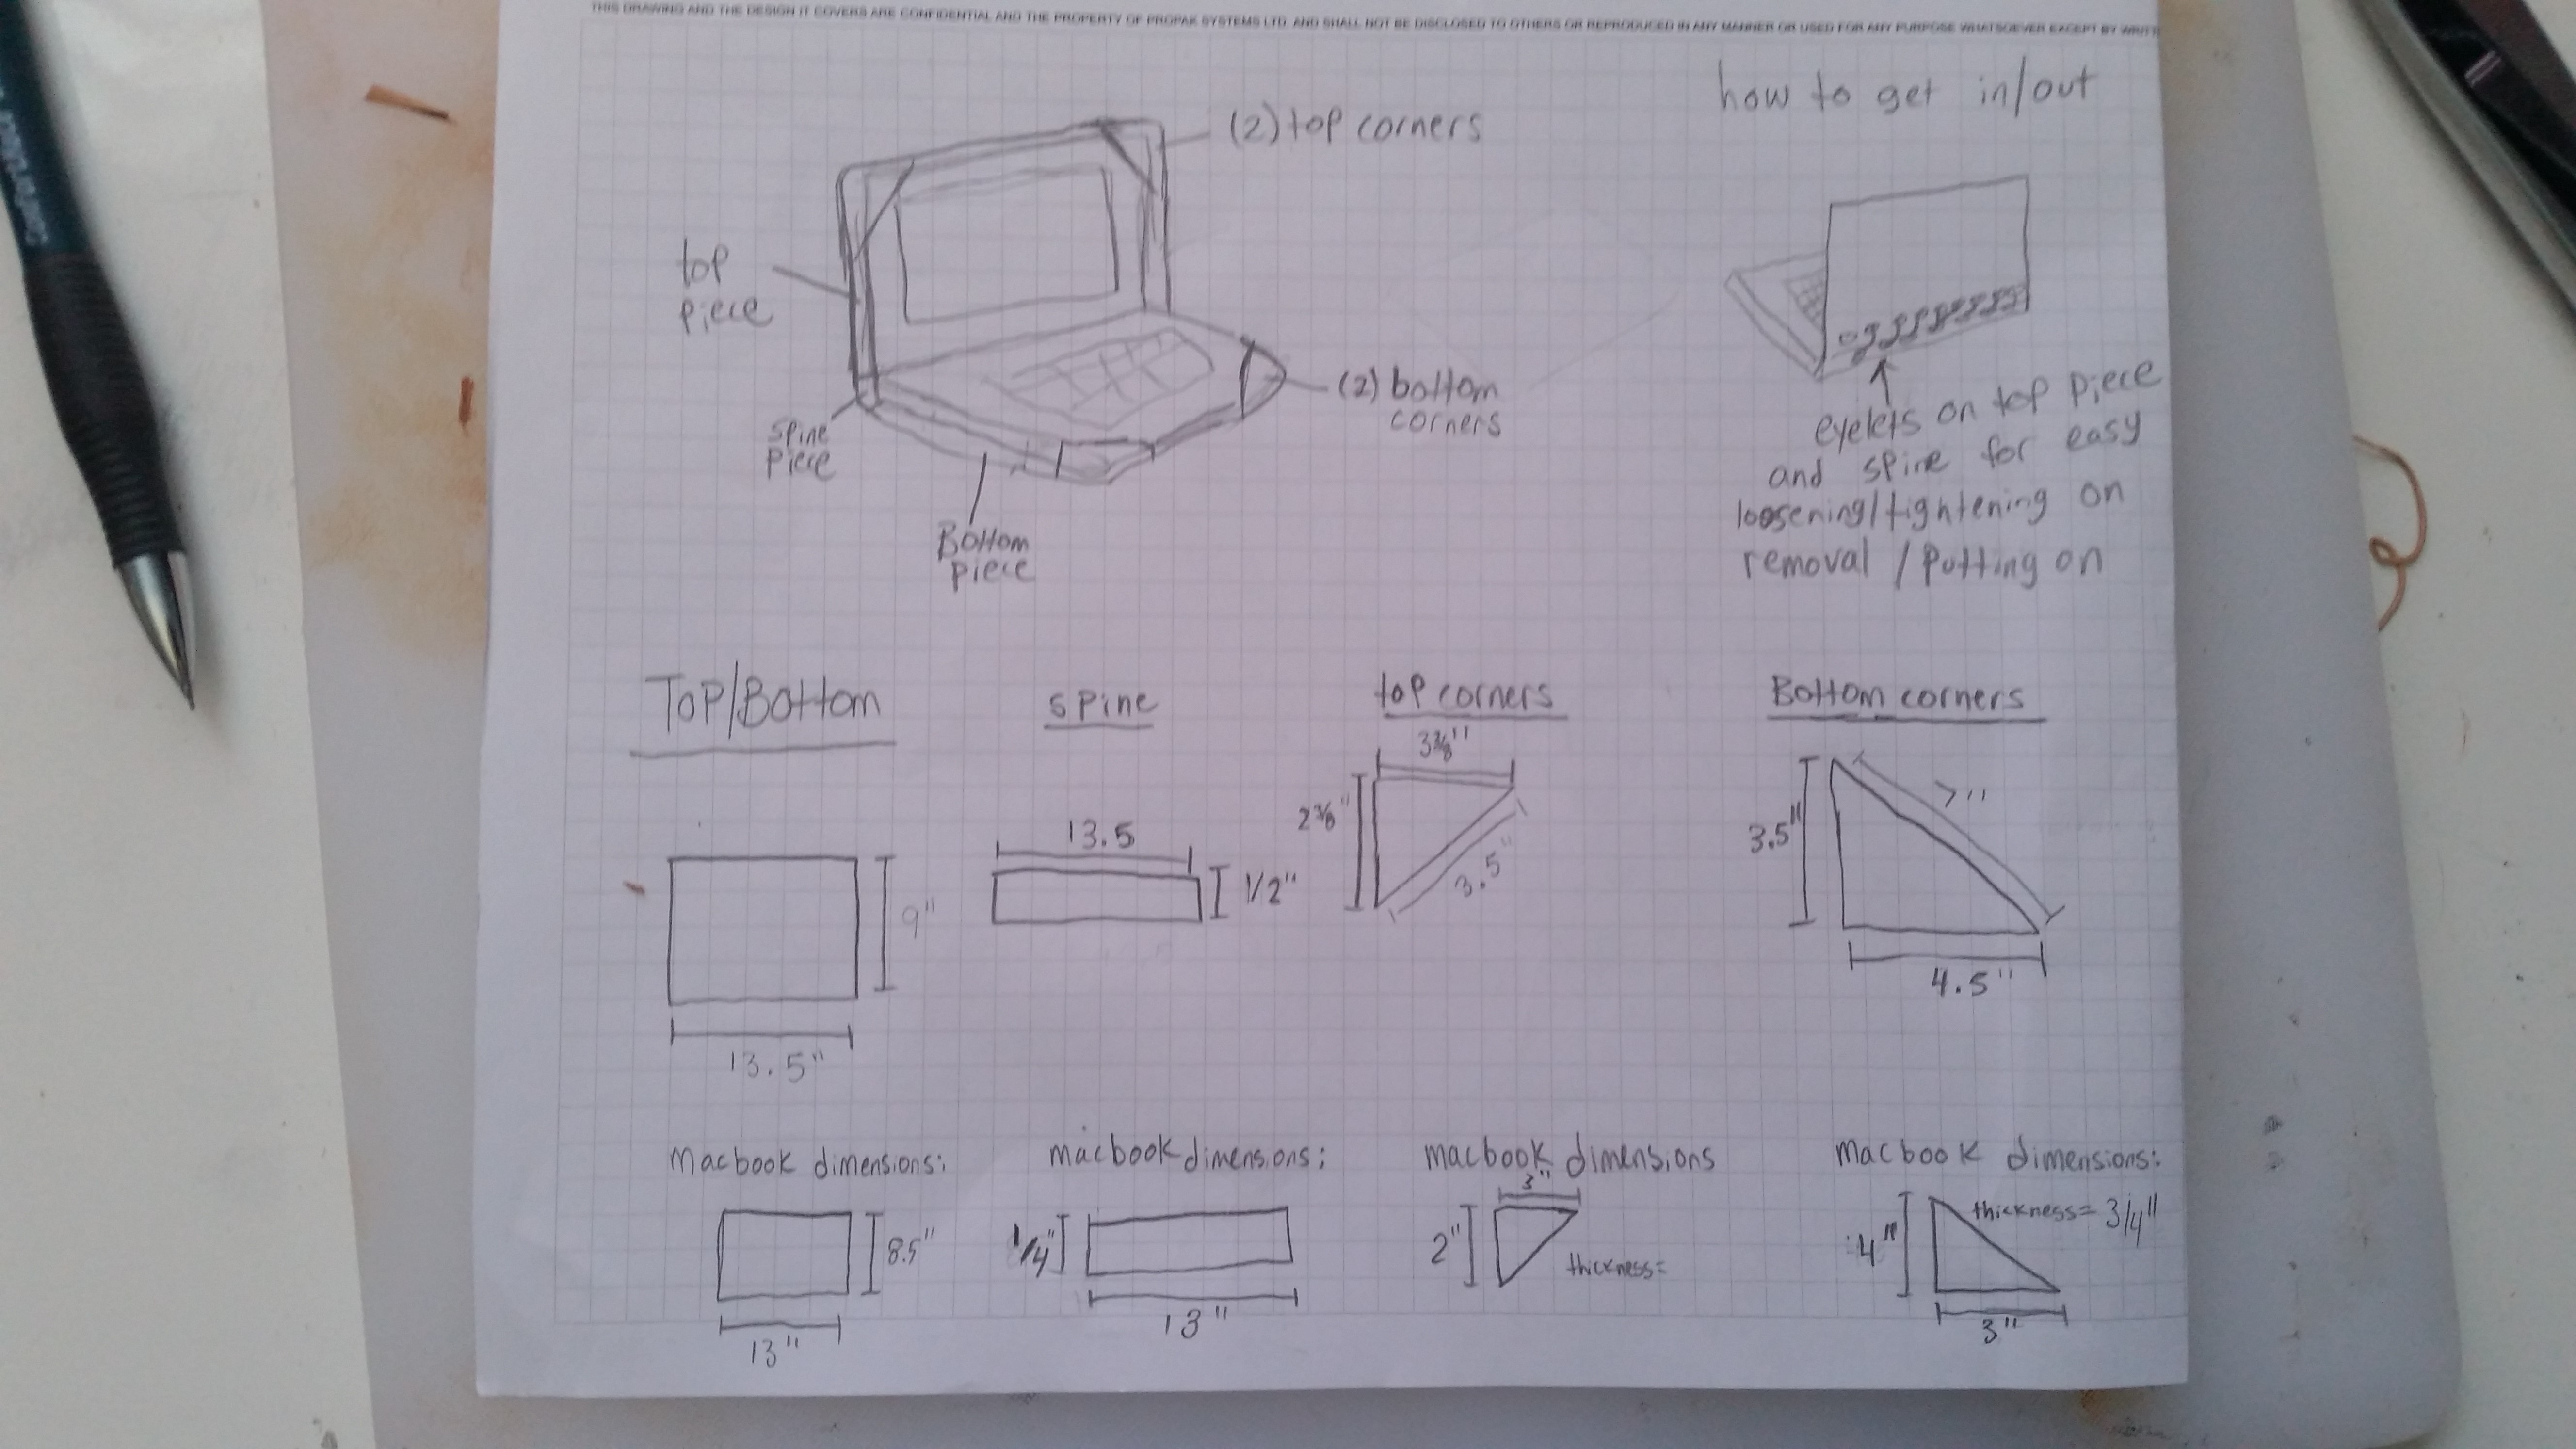 THIS DRAWING AND THE DESIGN IT COVERS ARE CONFIDENTIAL AND THE PROPERTY OF PROPAK SYSTEMS LTD. AND SHALL NOT BE DISCLOSED TO OTHERS OR REPRODUCED IN ANY MANNER OR USED FOR ANY PURPOSE WHATSOEVER EXCEPT BY
how to get in/out
(2) top corners
top
piece
(2) bottom
corners
spine
piece
Bottom
piece
eyelets on top piece
and spine for easy
loosening/tightening on
removal / putting on
Top/Bottom
spine
top corners
Bottom corners
9"
13.5"
13.5
1/2"
3 3/8"
2 3/8"
3.5"
3.5"
7"
4.5"
Macbook dimensions:
8.5"
13"
macbook dimensions:
1/4"
13"
macbook dimensions
3"
2"
thickness=
Macbook dimensions:
4"
thickness= 3/4"
3"